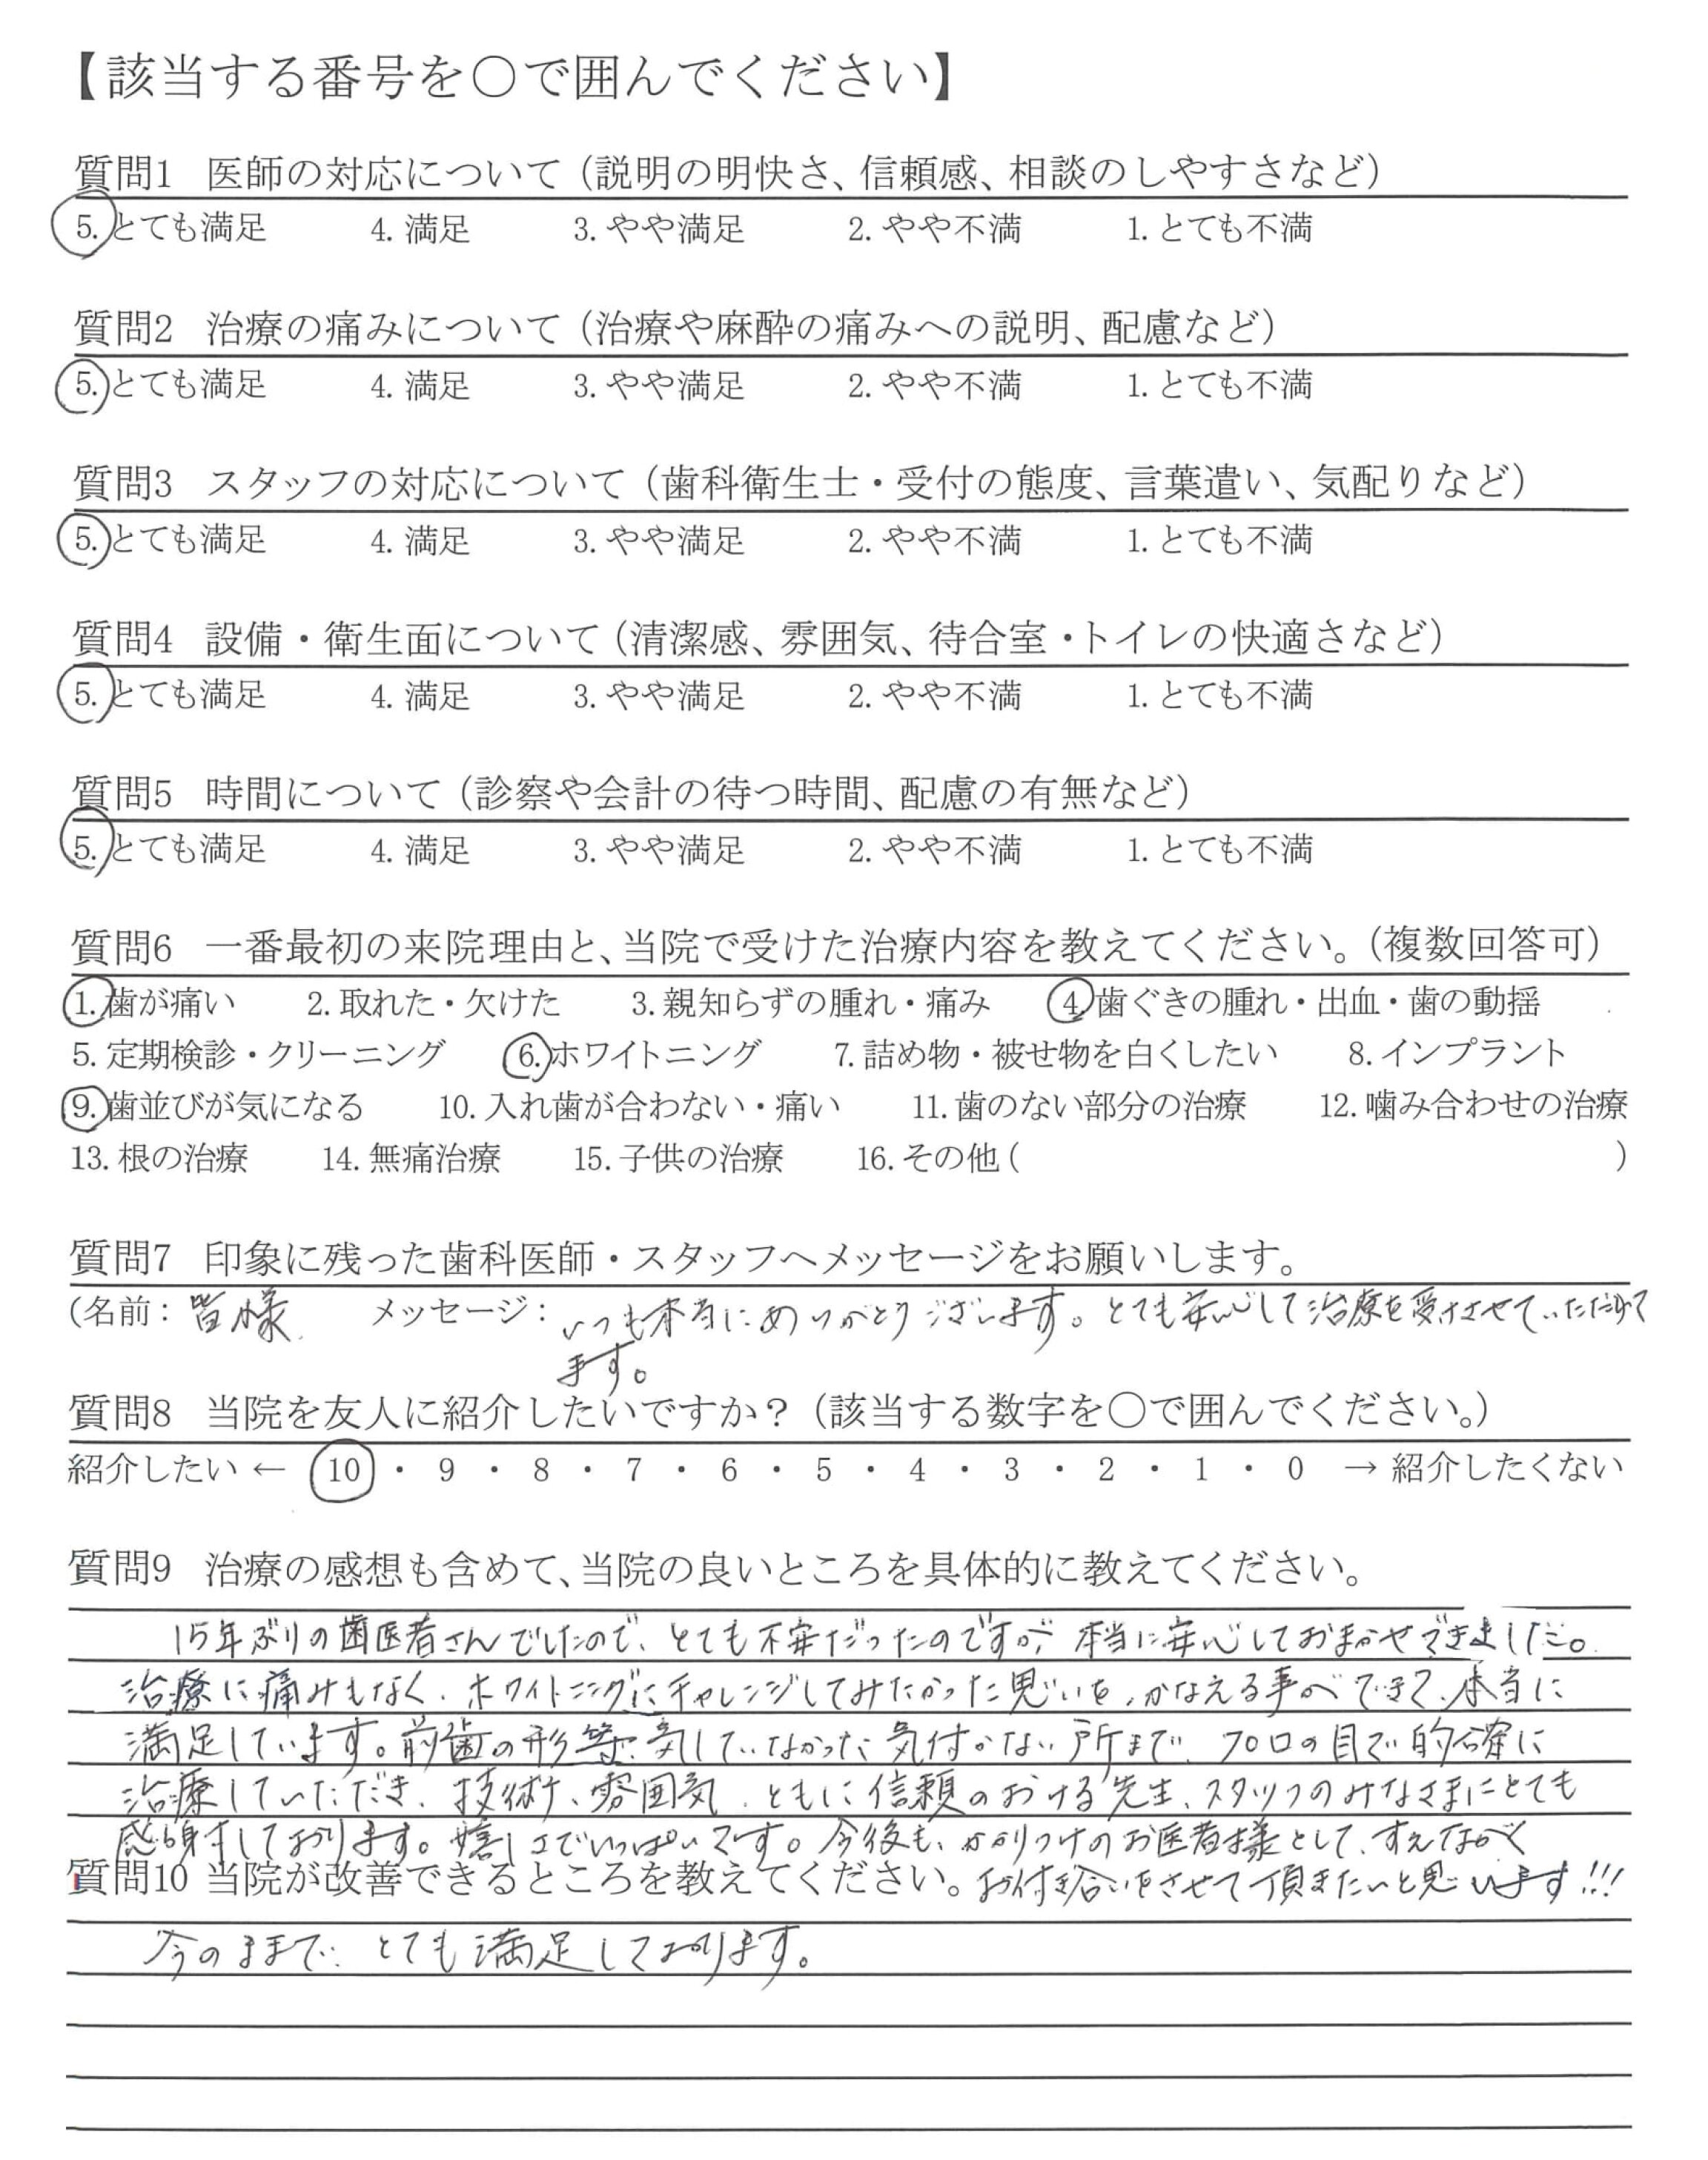 【該当する番号を○で囲んでください】
質問1 医師の対応について（説明の明快さ、信頼感、相談のしやすさなど）
5. とても満足 4. 満足 3. やや満足 2. やや不満 1. とても不満
質問2 治療の痛みについて（治療や麻酔の痛みへの説明、配慮など）
5. とても満足 4. 満足 3. やや満足 2. やや不満 1. とても不満
質問3 スタッフの対応について（歯科衛生士・受付の態度、言葉遣い、気配りなど）
5. とても満足 4. 満足 3. やや満足 2. やや不満 1. とても不満
質問4 設備・衛生面について（清潔感、雰囲気、待合室・トイレの快適さなど）
5. とても満足 4. 満足 3. やや満足 2. やや不満 1. とても不満
質問5 時間について（診察や会計の待つ時間、配慮の有無など）
5. とても満足 4. 満足 3. やや満足 2. やや不満 1. とても不満
質問6 一番最初の来院理由と、当院で受けた治療内容を教えてください。（複数回答可）
1. 歯が痛い 2. 取れた・欠けた 3. 親知らずの腫れ・痛み 4. 歯ぐきの腫れ・出血・歯の動揺
5. 定期検診・クリーニング 6. ホワイトニング 7. 詰め物・被せ物を白くしたい 8. インプラント
9. 歯並びが気になる 10. 入れ歯が合わない・痛い 11. 歯のない部分の治療 12. 噛み合わせの治療
13. 根の治療 14. 無痛治療 15. 子供の治療 16. その他（ ）
質問7 印象に残った歯科医師・スタッフへメッセージをお願いします。
（名前：皆様 メッセージ：いつも本当にありがとうございます。とても安心して治療を受けさせていただけて
ます。
質問8 当院を友人に紹介したいですか？（該当する数字を○で囲んでください。）
紹介したい ← 10 ・ 9 ・ 8 ・ 7 ・ 6 ・ 5 ・ 4 ・ 3 ・ 2 ・ 1 ・ 0 → 紹介したくない
質問9 治療の感想も含めて、当院の良いところを具体的に教えてください。
15年ぶりの歯医者さんでしたので、とても不安だったのですが、本当に安心しておまかせできました。
治療に痛みもなく、ホワイトニングにチャレンジしてみたかった思いを、かなえる事ができて、本当に
満足しています。前歯の形等、気していなかった気付かない所まで、プロの目で的確に
治療していただき、技術、雰囲気、ともに信頼のおける先生、スタッフのみなさまにとても
感謝しております。嬉しさでいっぱいです。今後も、かかりつけのお医者様として、すえながく
お付き合いをさせて頂きたいと思います!!!
質問10 当院が改善できるところを教えてください。
今のままで、とても満足しております。